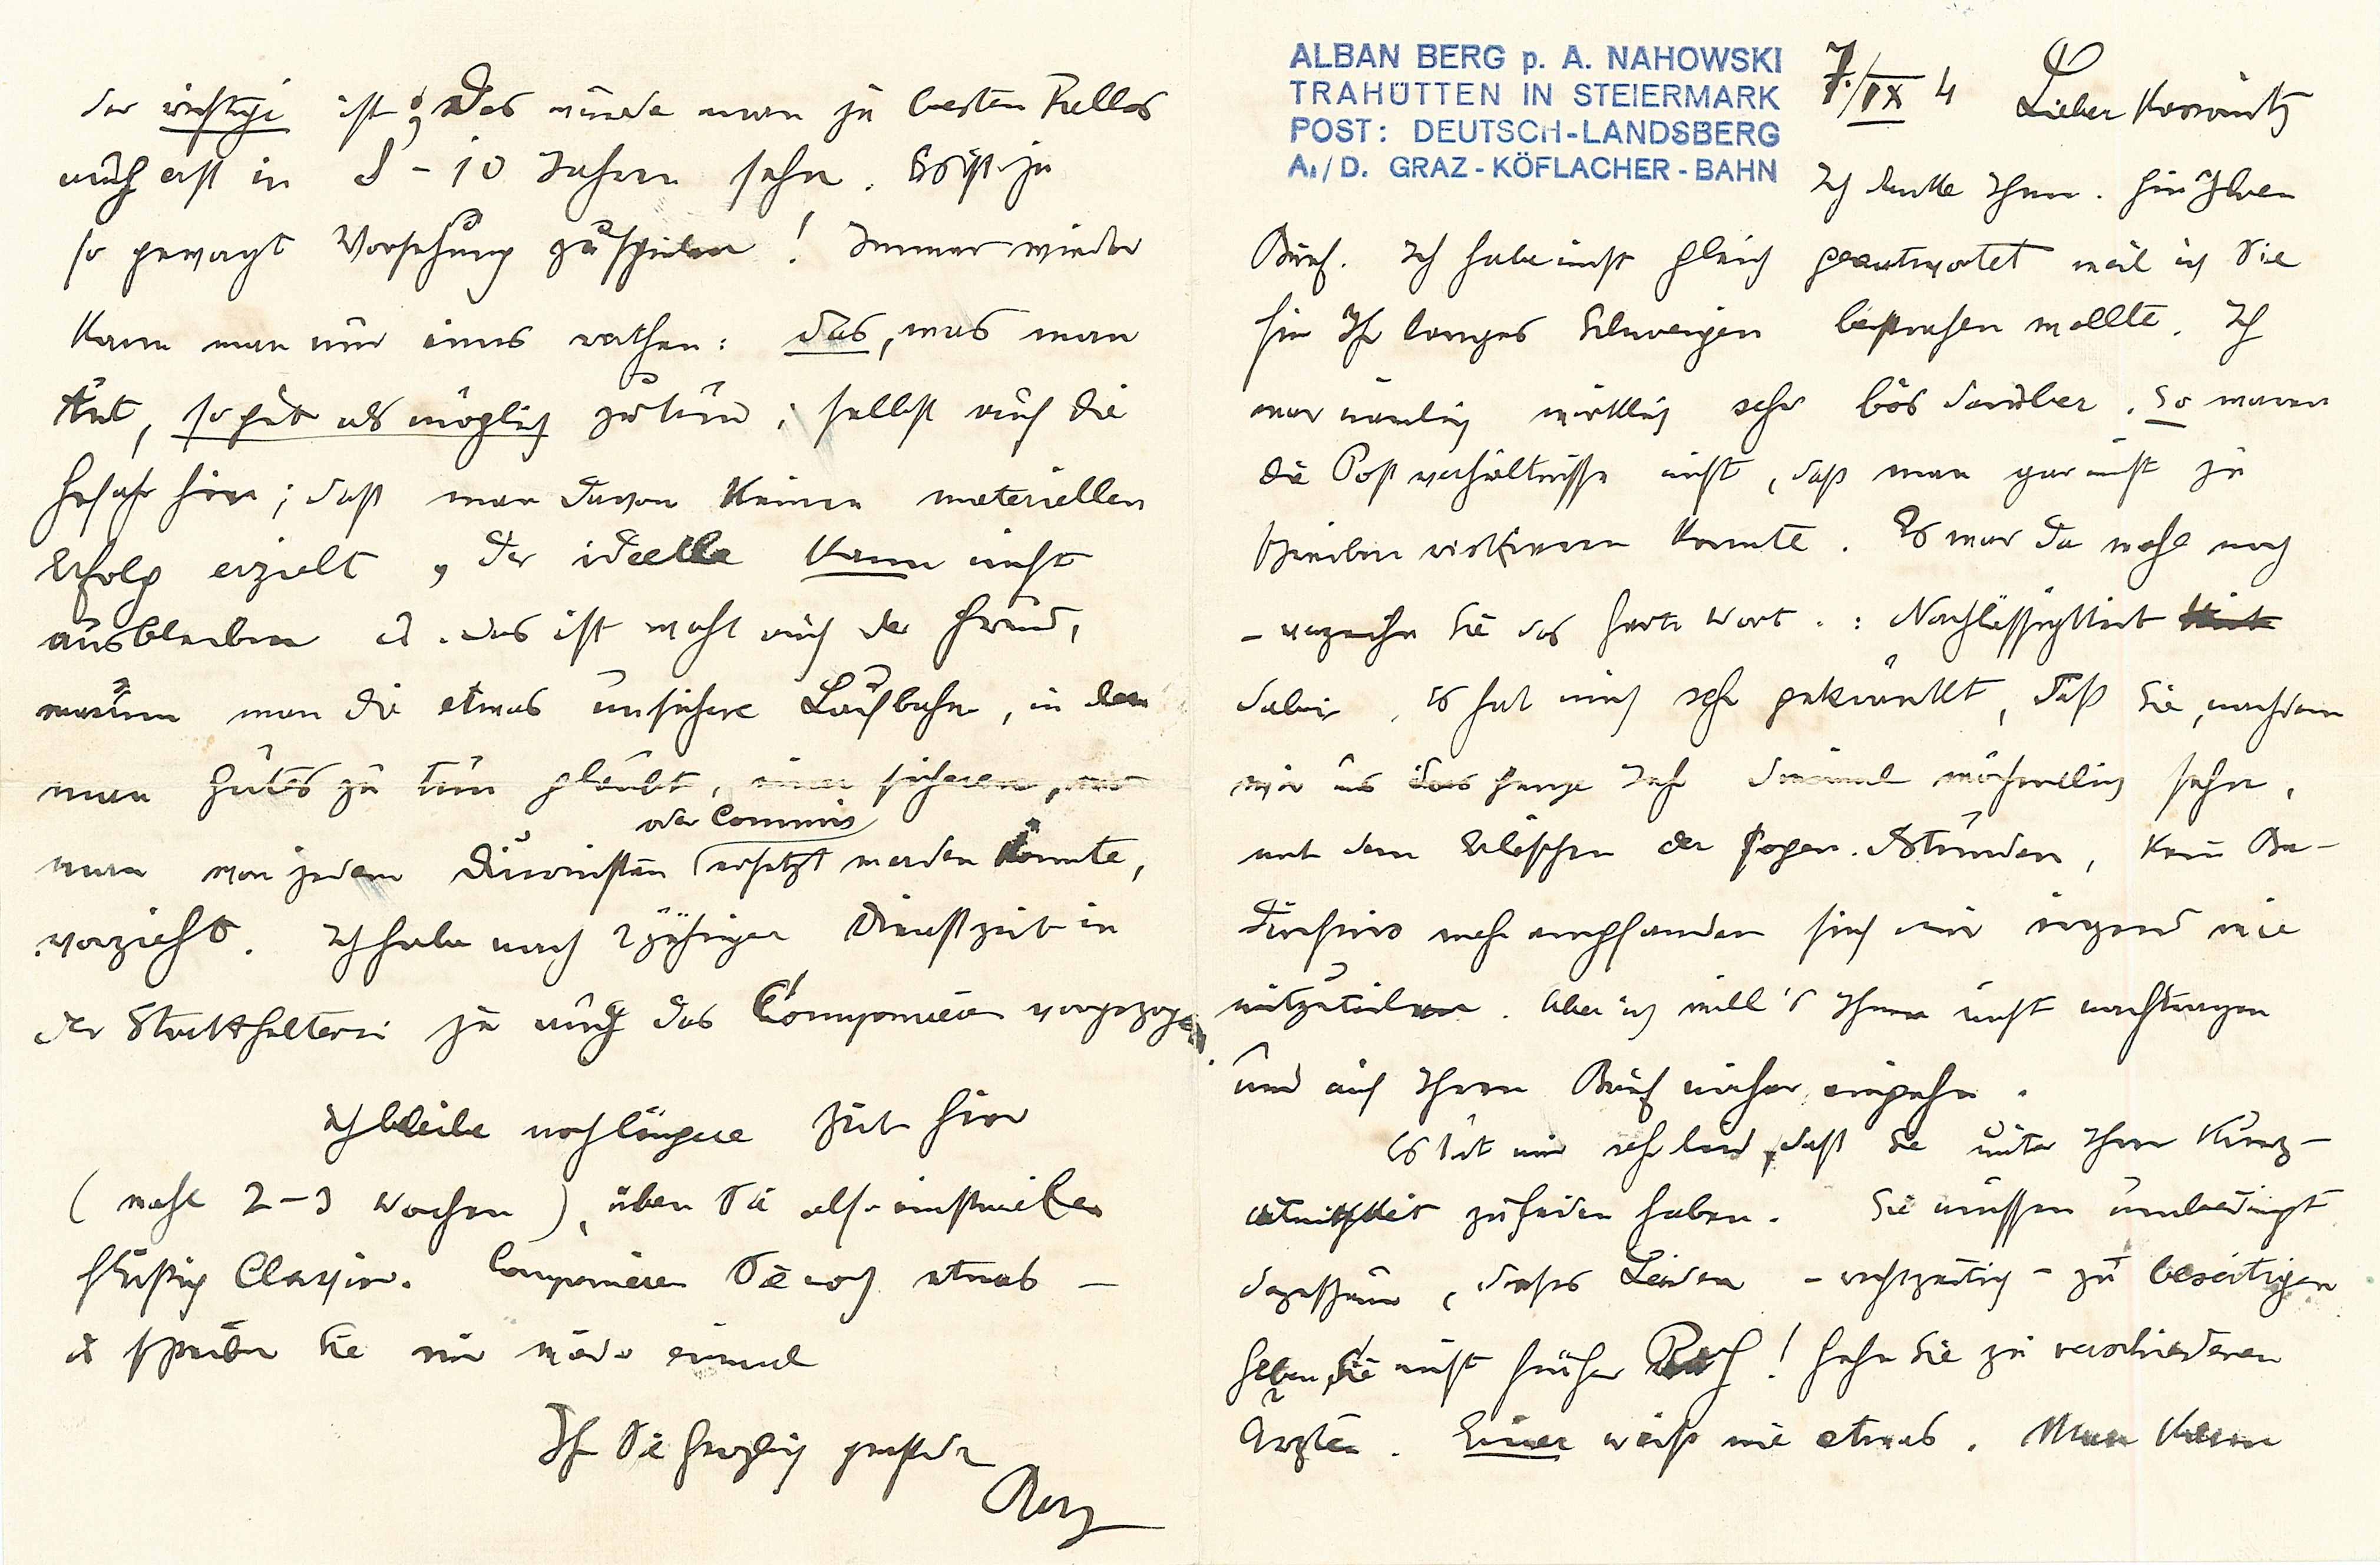 ALBAN BERG p. A. NAHOWSKI
TRAHÜTTEN IN STEIERMARK
POST: DEUTSCH-LANDSBERG
A./D. GRAZ-KÖFLACHER-BAHN
7./IX 4 Lieber Kassowitz
Ich danke Ihnen für Ihren
Brief. Ich habe nicht gleich geantwortet weil ich Sie
für Ihr langes Schweigen bestrafen wollte. Ich
war nämlich wirklich sehr bös darüber. So waren
die Postverhältnisse nicht, daß man gar nicht zu
schreiben riskieren konnte. Es war da wohl noch
– verzeihn Sie das harte Wort. : Nachlässigkeit
dabei. Es hat mich sehr gekränkt, daß Sie, nachdem
wir uns das ganze Jahr dreimal wöchentlich sehn,
mit dem Erlöschen der sogen. Stunden, kein Be-
dürfnis mehr empfanden sich mir irgend wie
mitzuteilen. Aber ich will's Ihnen nicht nachtragen
und auf Ihren Brief näher eingehn.
Es tut mir sehr leid, daß Sie unter Ihrer Kurz-
atmigkeit zu leiden haben. Sie müssen unbedingt
dazuschaun, dieses Leiden – rechtzeitig – zu beseitigen
Geben Sie nicht früher Ruh! Gehn Sie zu verschiedenen
Ärzten. Einer weiß nie etwas. Man kann
der richtige ist? Das würde man ja besten Falles
auch erst in 8–10 Jahren sehn. Es ist ja
so gewagt Vorsehung zu spielen! Immer wieder
kann man nur eines rathen: das, was man
tut, so gut als möglich zu tun; selbst auf die
Gefahr hin; daß man davon keinen materiellen
Erfolg erzielt, der ideelle kann nicht
ausbleiben u. das ist wohl auch der Grund,
warum man die etwas unsichere Laufbahn, in der
man Gutes zu tun glaubt, einer sicheren, wo
oder Commis
man von jedem Diurnisten ersetzt werden könnte,
vorzieht. Ich habe nach 2jähriger Dienstzeit in
der Statthalterei ja auch das Componieren vorgezogen.
Ich bleibe noch längere Zeit hier
(wohl 2–3 Wochen), üben Sie also einstweilen
fleißig Clavier. Componieren Sie noch etwas –
u schreiben Sie mir wieder einmal
Ihr Sie herzlich grüßender
Berg